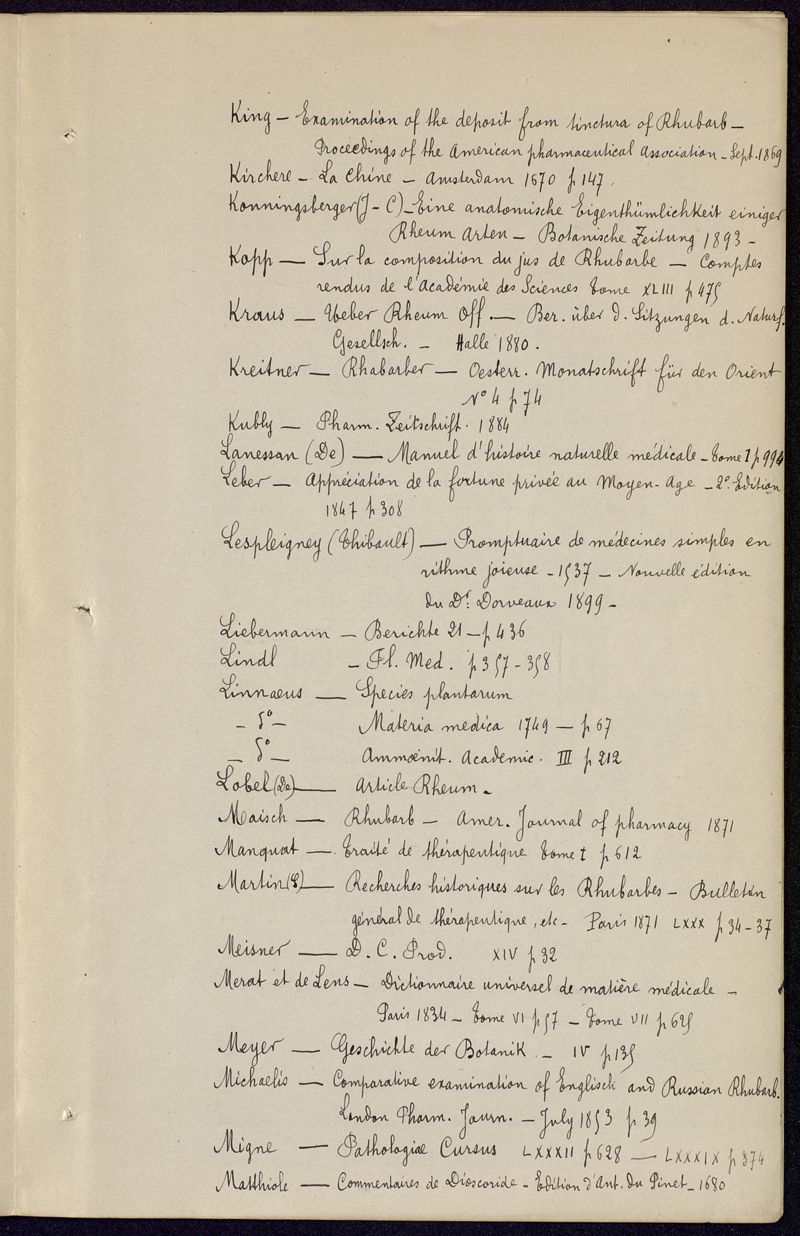 King — Examination of the deposit from tinctura of Rhubarb —
Proceedings of the American pharmaceutical Association — Sept. 1869
Kirchere — La Chine — Amsterdam 1670 p 147.
Konningsberger (J - C) — Eine anatomische Eigenthümlichkeit einiger
Rheum Arten — Botanische Zeitung 1893 —
Kopp — Sur la composition du jus de Rhubarbe — Comptes
rendus de l'Académie des Sciences tome XLIII p 475
Kraus — Ueber Rheum Off. — Ber. über d. Sitzungen d. Naturf.
Gesellsch. — Halle 1880.
Kreitner — Rhabarber — Oesterr. Monatschrift für den Orient
No 4 p 74
Kubly — Pharm. Zeitschrift. 1884
Lanessan (De) — Manuel d'histoire naturelle médicale — tome I p 994
Leber — Appréciation de la fortune privée au Moyen-Age — 2e. Edition
1847 p 308
Lespleigney (Thibault) — Promptuaire de médecines simples en
rithme joieuse — 1537 — Nouvelle édition
du Dr. Dorveaux 1899 —
Liebermann — Berichte 21 — p 436
Lindl — Fl. Med. p 357 - 358
Linnaeus — Species plantarum
— do — Materia medica 1749 — p 67
— do — Ammœnit. Academic. III p 212
Lobel (De) — Article Rheum —
Maisch — Rhubarb — Amer. Journal of pharmacy 1871
Manquat — Traité de thérapeutique tome I p 612
Martin (S) — Recherches historiques sur les Rhubarbes — Bulletin
général de thérapeutique, etc — Paris 1871 LXXX p 34 - 37
Meisner — D. C. Prod. XIV p 32
Merat et de Lens — Dictionnaire universel de matière médicale —
Paris 1834 — tome VI p 57 — tome VII p 625
Meyer — Geschichte der Botanik — IV p 135
Michaelis — Comparative examination of Englisch and Russian Rhubarb.
London Pharm. Journ. — July 1853 p 39
Migne — Pathologiæ Cursus LXXXII p 628 — LXXXIX p 374
Matthiole — Commentaires de Dioscoride — Edition d'Ant. du Pinet — 1680